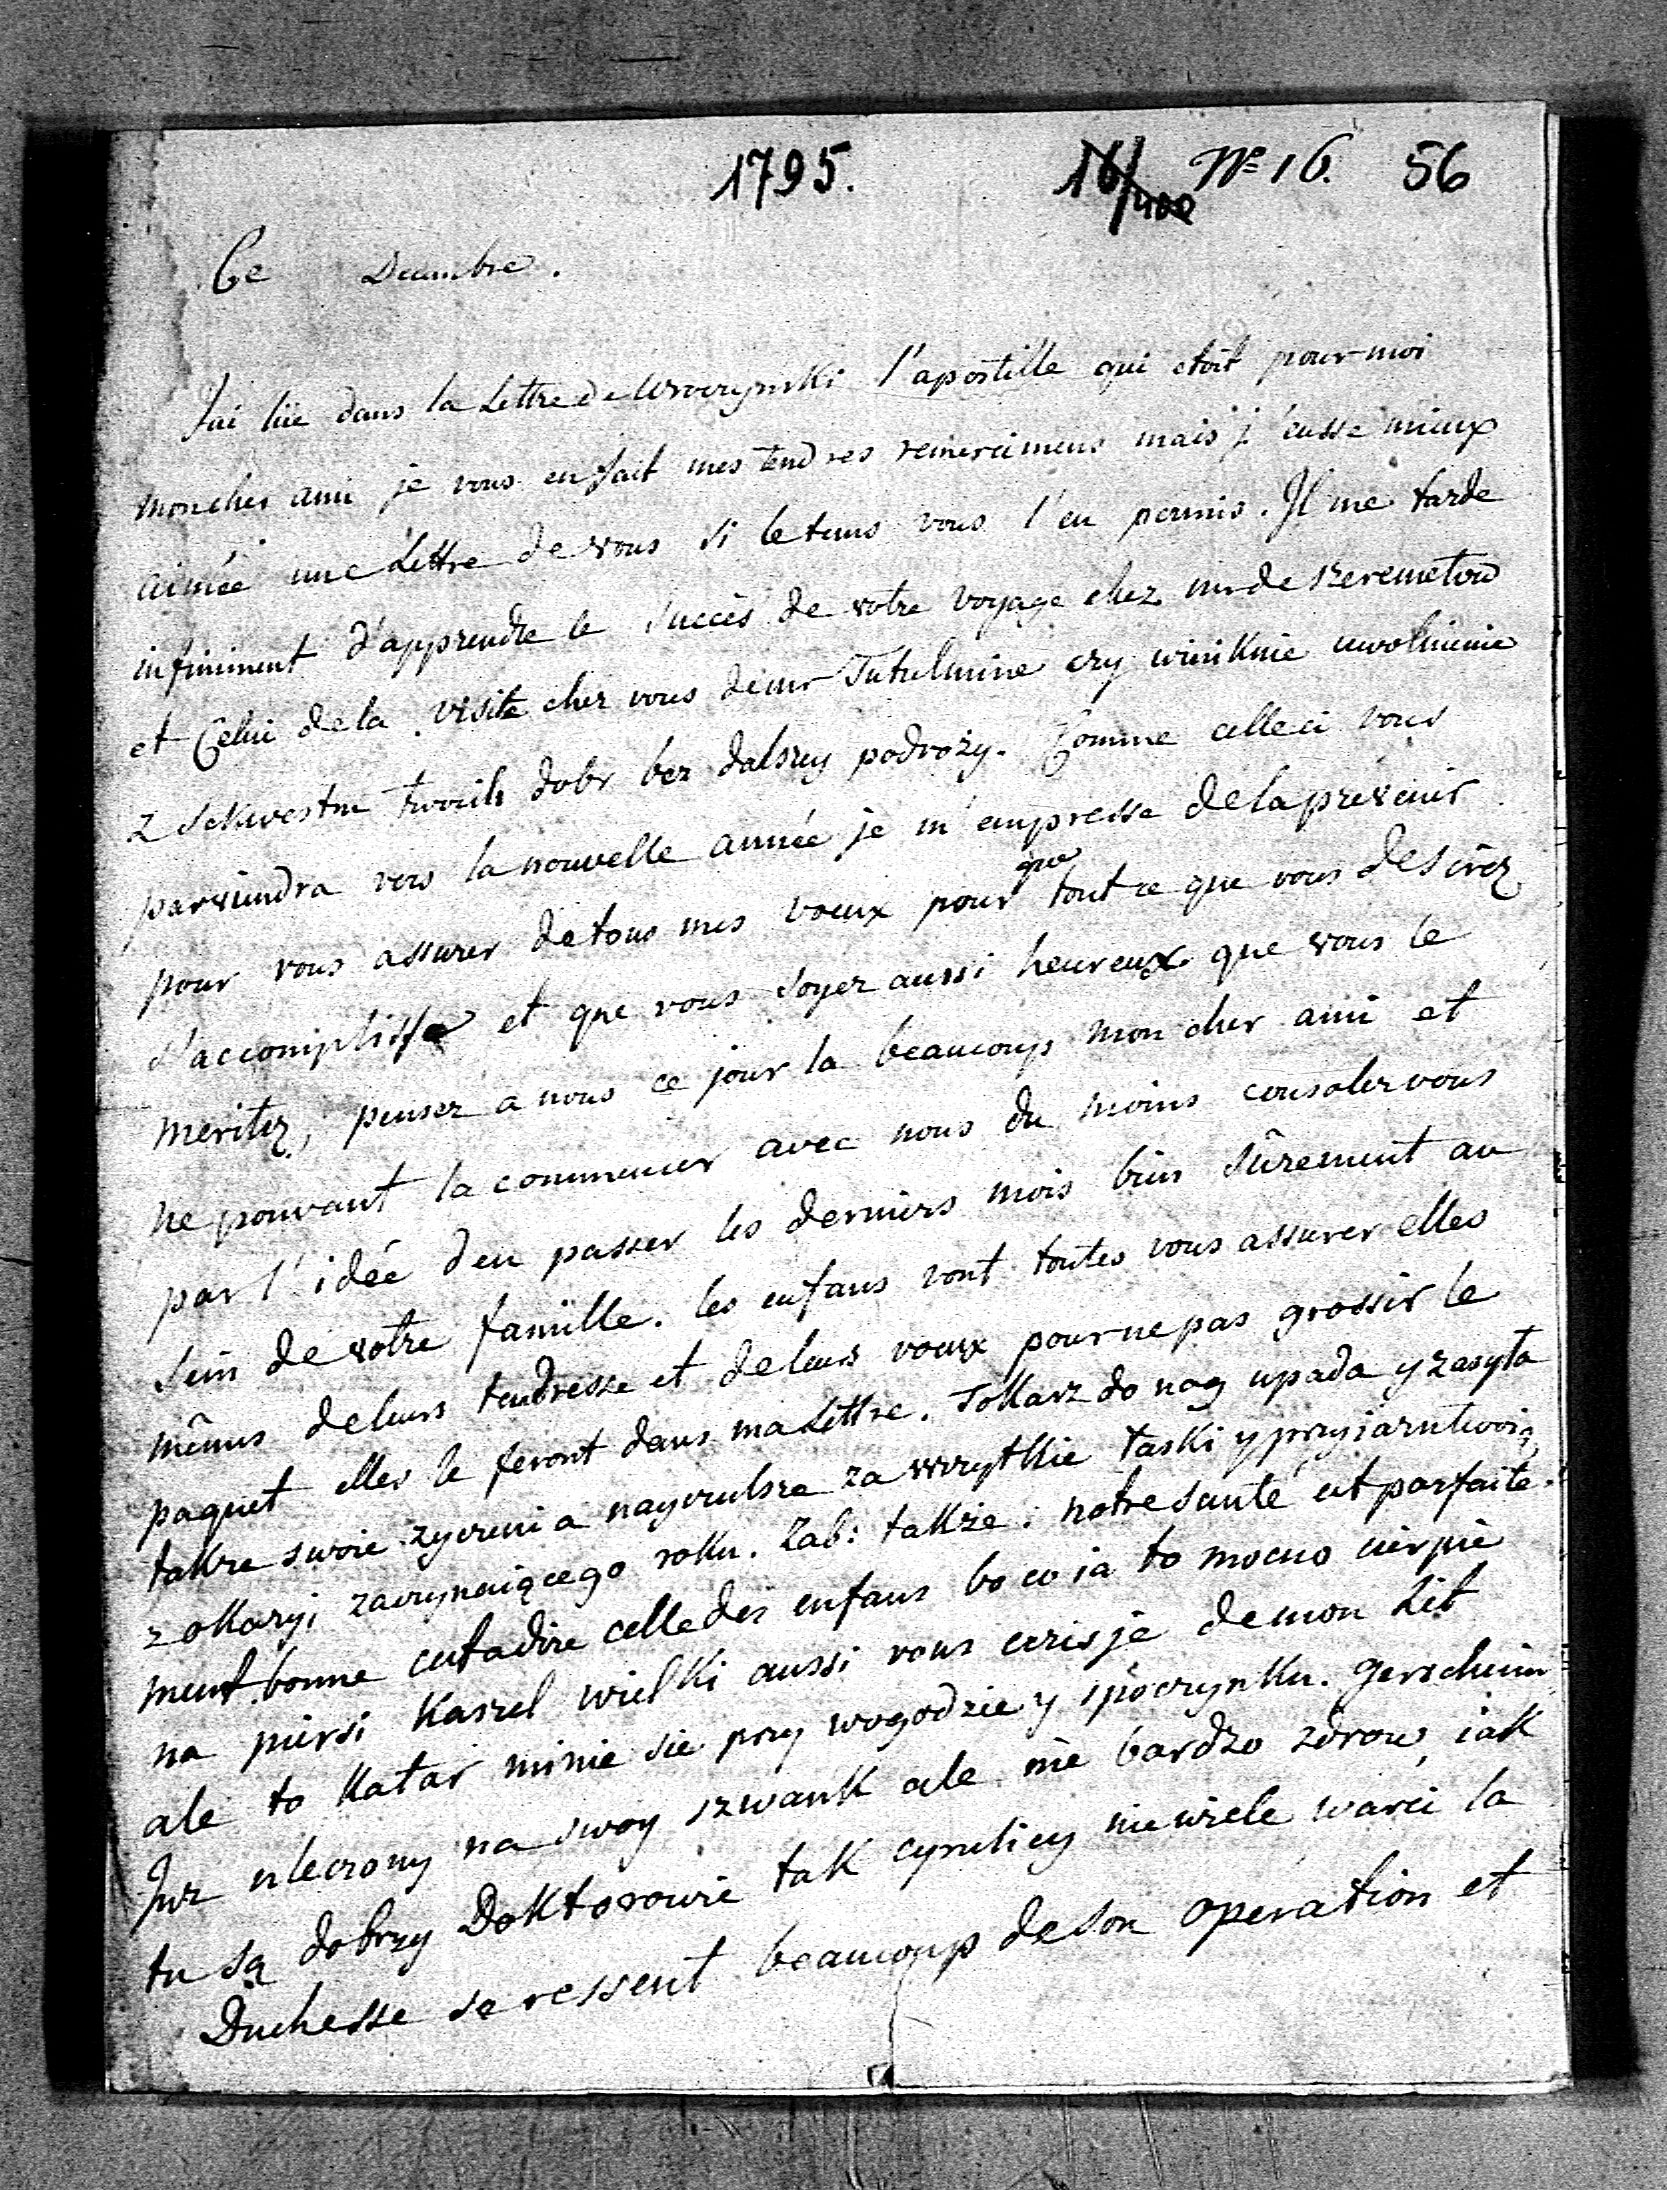 1795. 16/ Nº 16. 56
Ce Decembre.
J'ai lüe dans la Lettre de Wroczynski l'apostille qui etoit pour moi
mon cher ami je vous en fait mes tendres remercimens mais j'eusse mieux
aimée une Lettre de vous si le tems vous l'eu permis. Il me tarde
infiniment d'apprendre le succès de votre voyage chez mr de Szeremetow
et Celui de la visite chez vous de mr Tutulmine czy wimknie uwolnienie
z Sekwestru twoich dobr bez dalszey podroży. Comme celle ci vous
parviendra vers la nouvelle année je m'empresse de la prévenir
pour vous assurer de tous mes voeux pour que tout ce que vous desirez
s'accomplisse et que vous soyez aussi heureux que vous le
meritez, pensez a nous ce jour la beaucoup mon cher ami et
ne pouvant la commencer avec nous du moins consolez vous
par l'idée d'en passer les derniers mois bien sûrement au
sein de votre famille. les enfans vont toutes vous assurer elles
mêmes de leurs tendresse et de leurs voeux pour ne pas grossir le
paquet elles le feront dans ma Lettre. Tokarz do nog upada y zasyła
takze swoie zyczenia nayczulsze za wszytkie łaski y przyiazn twoią
z okazyi zaczynaiącego roku. Zab: takze. notre santé est parfaite.
ment bonne cest a dire celle des enfans bo co ia to mocno cierpie
na piersi kaszel wielki aussi vous ecris je de mon Lit
ale to katar minie sie przy wogodzie y spoczynku. Gerscheim
Juz uleczony na swoy szwank ale nie bardzo zdrow, iak
tu są dobrzy Doktorowie tak cyrulicy niewiele warci la
Duchesse se ressent beaucoup de son operation et